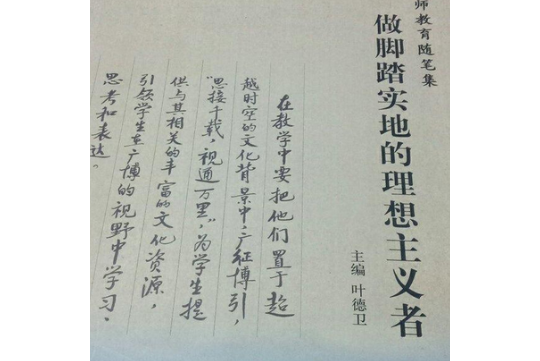 师教育随笔集
做脚踏实地的理想主义者
主编 叶德卫
在教学中要把他们置于超
越时空的文化背景中，广征博引，
“思接千载，视通万里”，为学生提
供与其相关的丰富的文化资源，
引领学生在广博的视野中学习、
思考和表达。